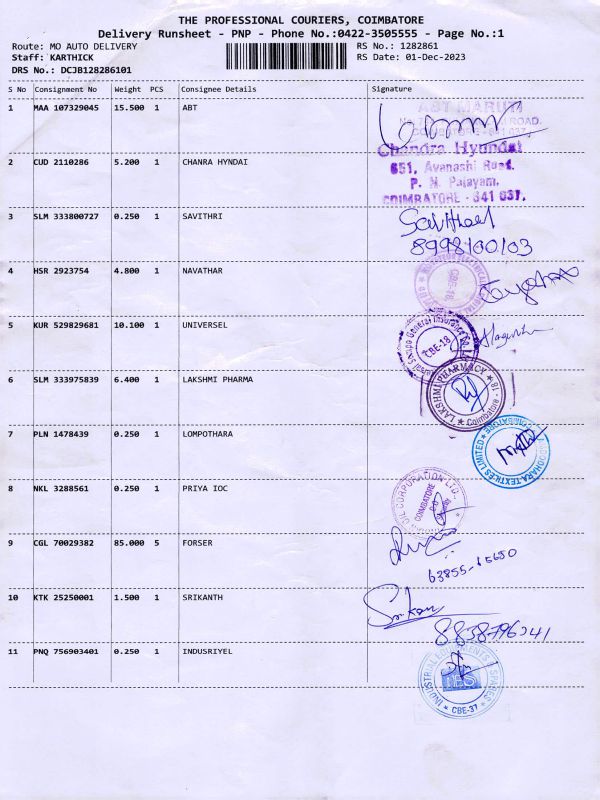 THE PROFESSIONAL COURIERS, COIMBATORE
Delivery Runsheet - PNP - Phone No.:0422-3505555 - Page No.:1
Route: MO AUTO DELIVERY RS No.: 1282861
Staff: KARTHICK RS Date: 01-Dec-2023
DRS No.: DCJB128286101
S No Consignment No Weight PCS Consignee Details Signature
1 MAA 107329045 15.500 1 ABT
ABT MARUTI
COIMBATORE - 641 037
2 CUD 2110286 5.200 1 CHANRA HYNDAI
Chandra Hyundai
651, Avanashi Road.
P. N. Palayam,
COIMBATORE - 641 037.
3 SLM 333800727 0.250 1 SAVITHRI
8998100103
4 HSR 2923754 4.800 1 NAVATHAR
CBE-18
5 KUR 529829681 10.100 1 UNIVERSEL
General Insurance Co. Ltd
CBE-18
6 SLM 333975839 6.400 1 LAKSHMI PHARMA
LAKSHMI PHARMACY
Coimbatore - 18
7 PLN 1478439 0.250 1 LOMPOTHARA
TEXTILES LIMITED
COIMBATORE
8 NKL 3288561 0.250 1 PRIYA IOC
OIL CORPORATION LTD.,
COIMBATORE
9 CGL 70029382 85.000 5 FORSER
63855-65650
10 KTK 25250001 1.500 1 SRIKANTH
Srikan
8838796341
11 PNQ 756903401 0.250 1 INDUSRIYEL
INDUSTRIAL & SPARES
IES
CBE-37